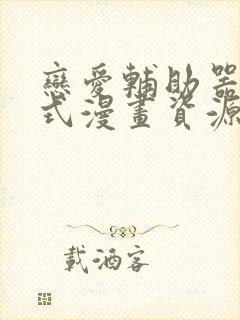 戀愛輔助器
式漫畫資源
載酒客